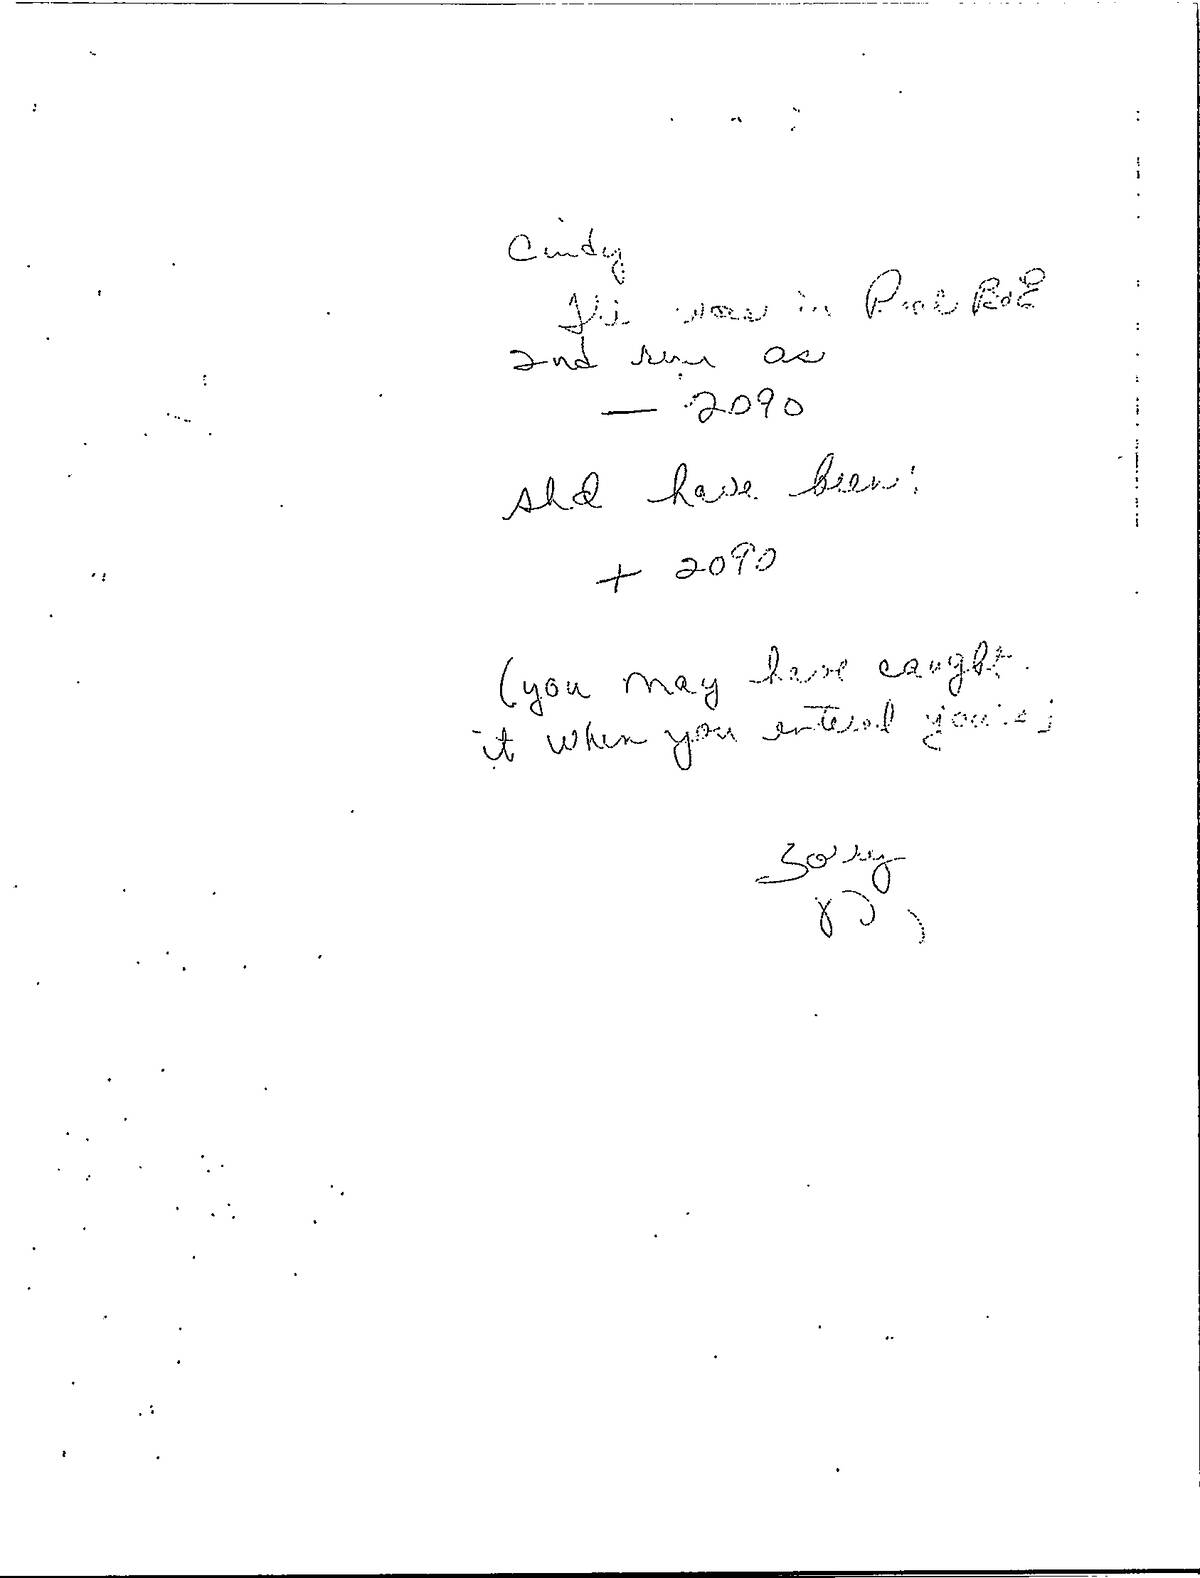 Cindy
in
2nd run as
— 2090
shd have been:
+ 2090
(you may have caught
it when you entered yours)
Sorry